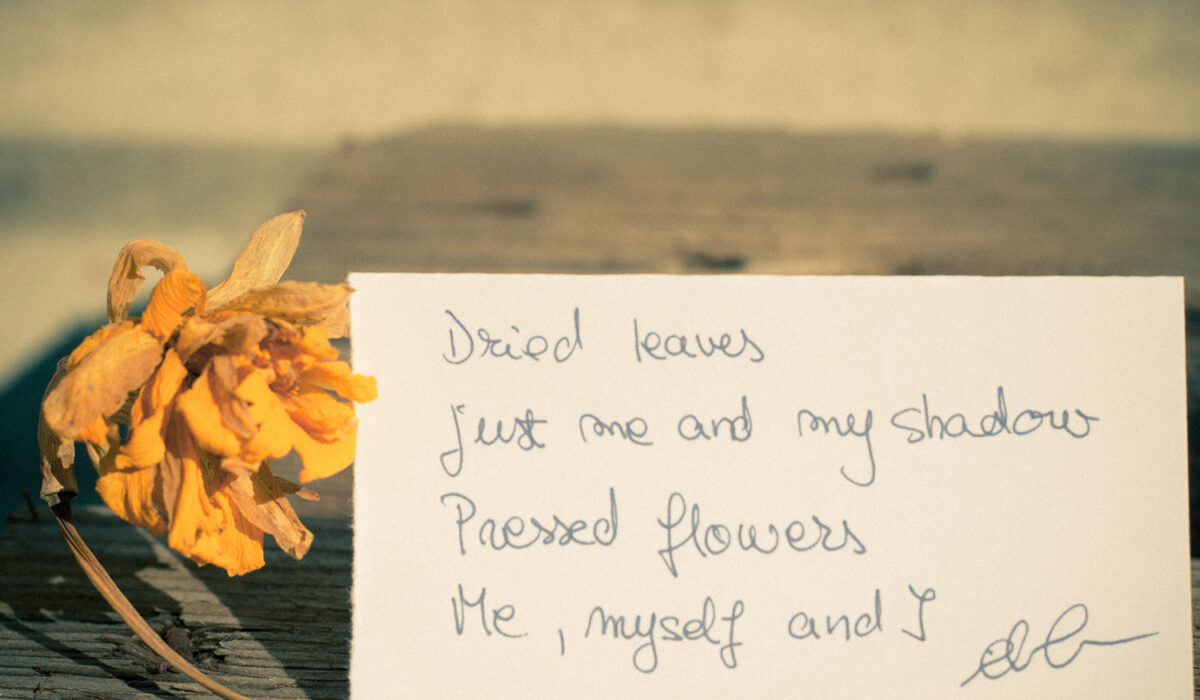 Dried leaves
just me and my shadow
Pressed flowers
Me, myself and I